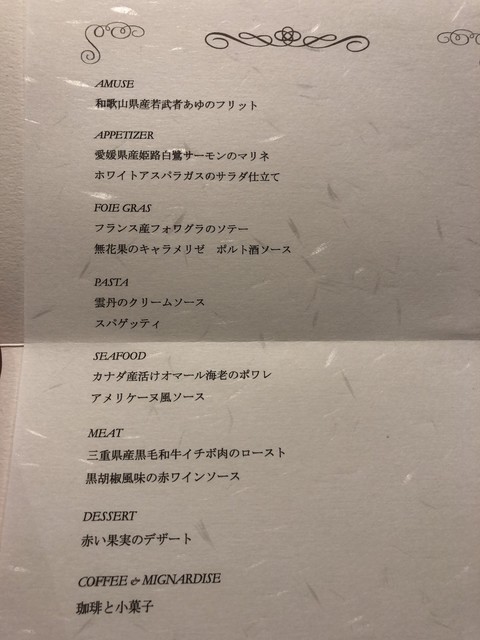 AMUSE
和歌山県産若武者あゆのフリット
APPETIZER
愛媛県産姫路白鷺サーモンのマリネ
ホワイトアスパラガスのサラダ仕立て
FOIE GRAS
フランス産フォワグラのソテー
無花果のキャラメリゼ　ポルト酒ソース
PASTA
雲丹のクリームソース
スパゲッティ
SEAFOOD
カナダ産活けオマール海老のポワレ
アメリケーヌ風ソース
MEAT
三重県産黒毛和牛イチボ肉のロースト
黒胡椒風味の赤ワインソース
DESSERT
赤い果実のデザート
COFFEE & MIGNARDISE
珈琲と小菓子